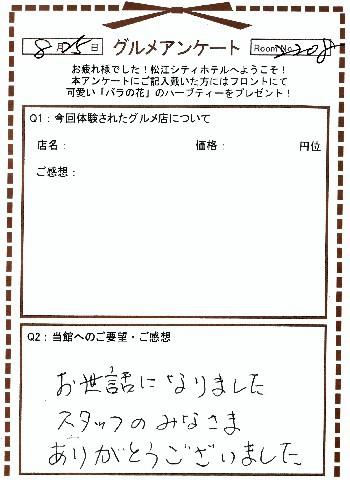 8月05日 グルメアンケート Room No. 208
お疲れ様でした！松江シティホテルへようこそ！
本アンケートにご記入戴いた方にはフロントにて
可愛い「バラの花」のハーブティーをプレゼント！
Q1：今回体験されたグルメ店について
店名： 価格： 円位
ご感想：
Q2：当館へのご要望・ご感想
お世話になりました
スタッフのみなさま
ありがとうございました